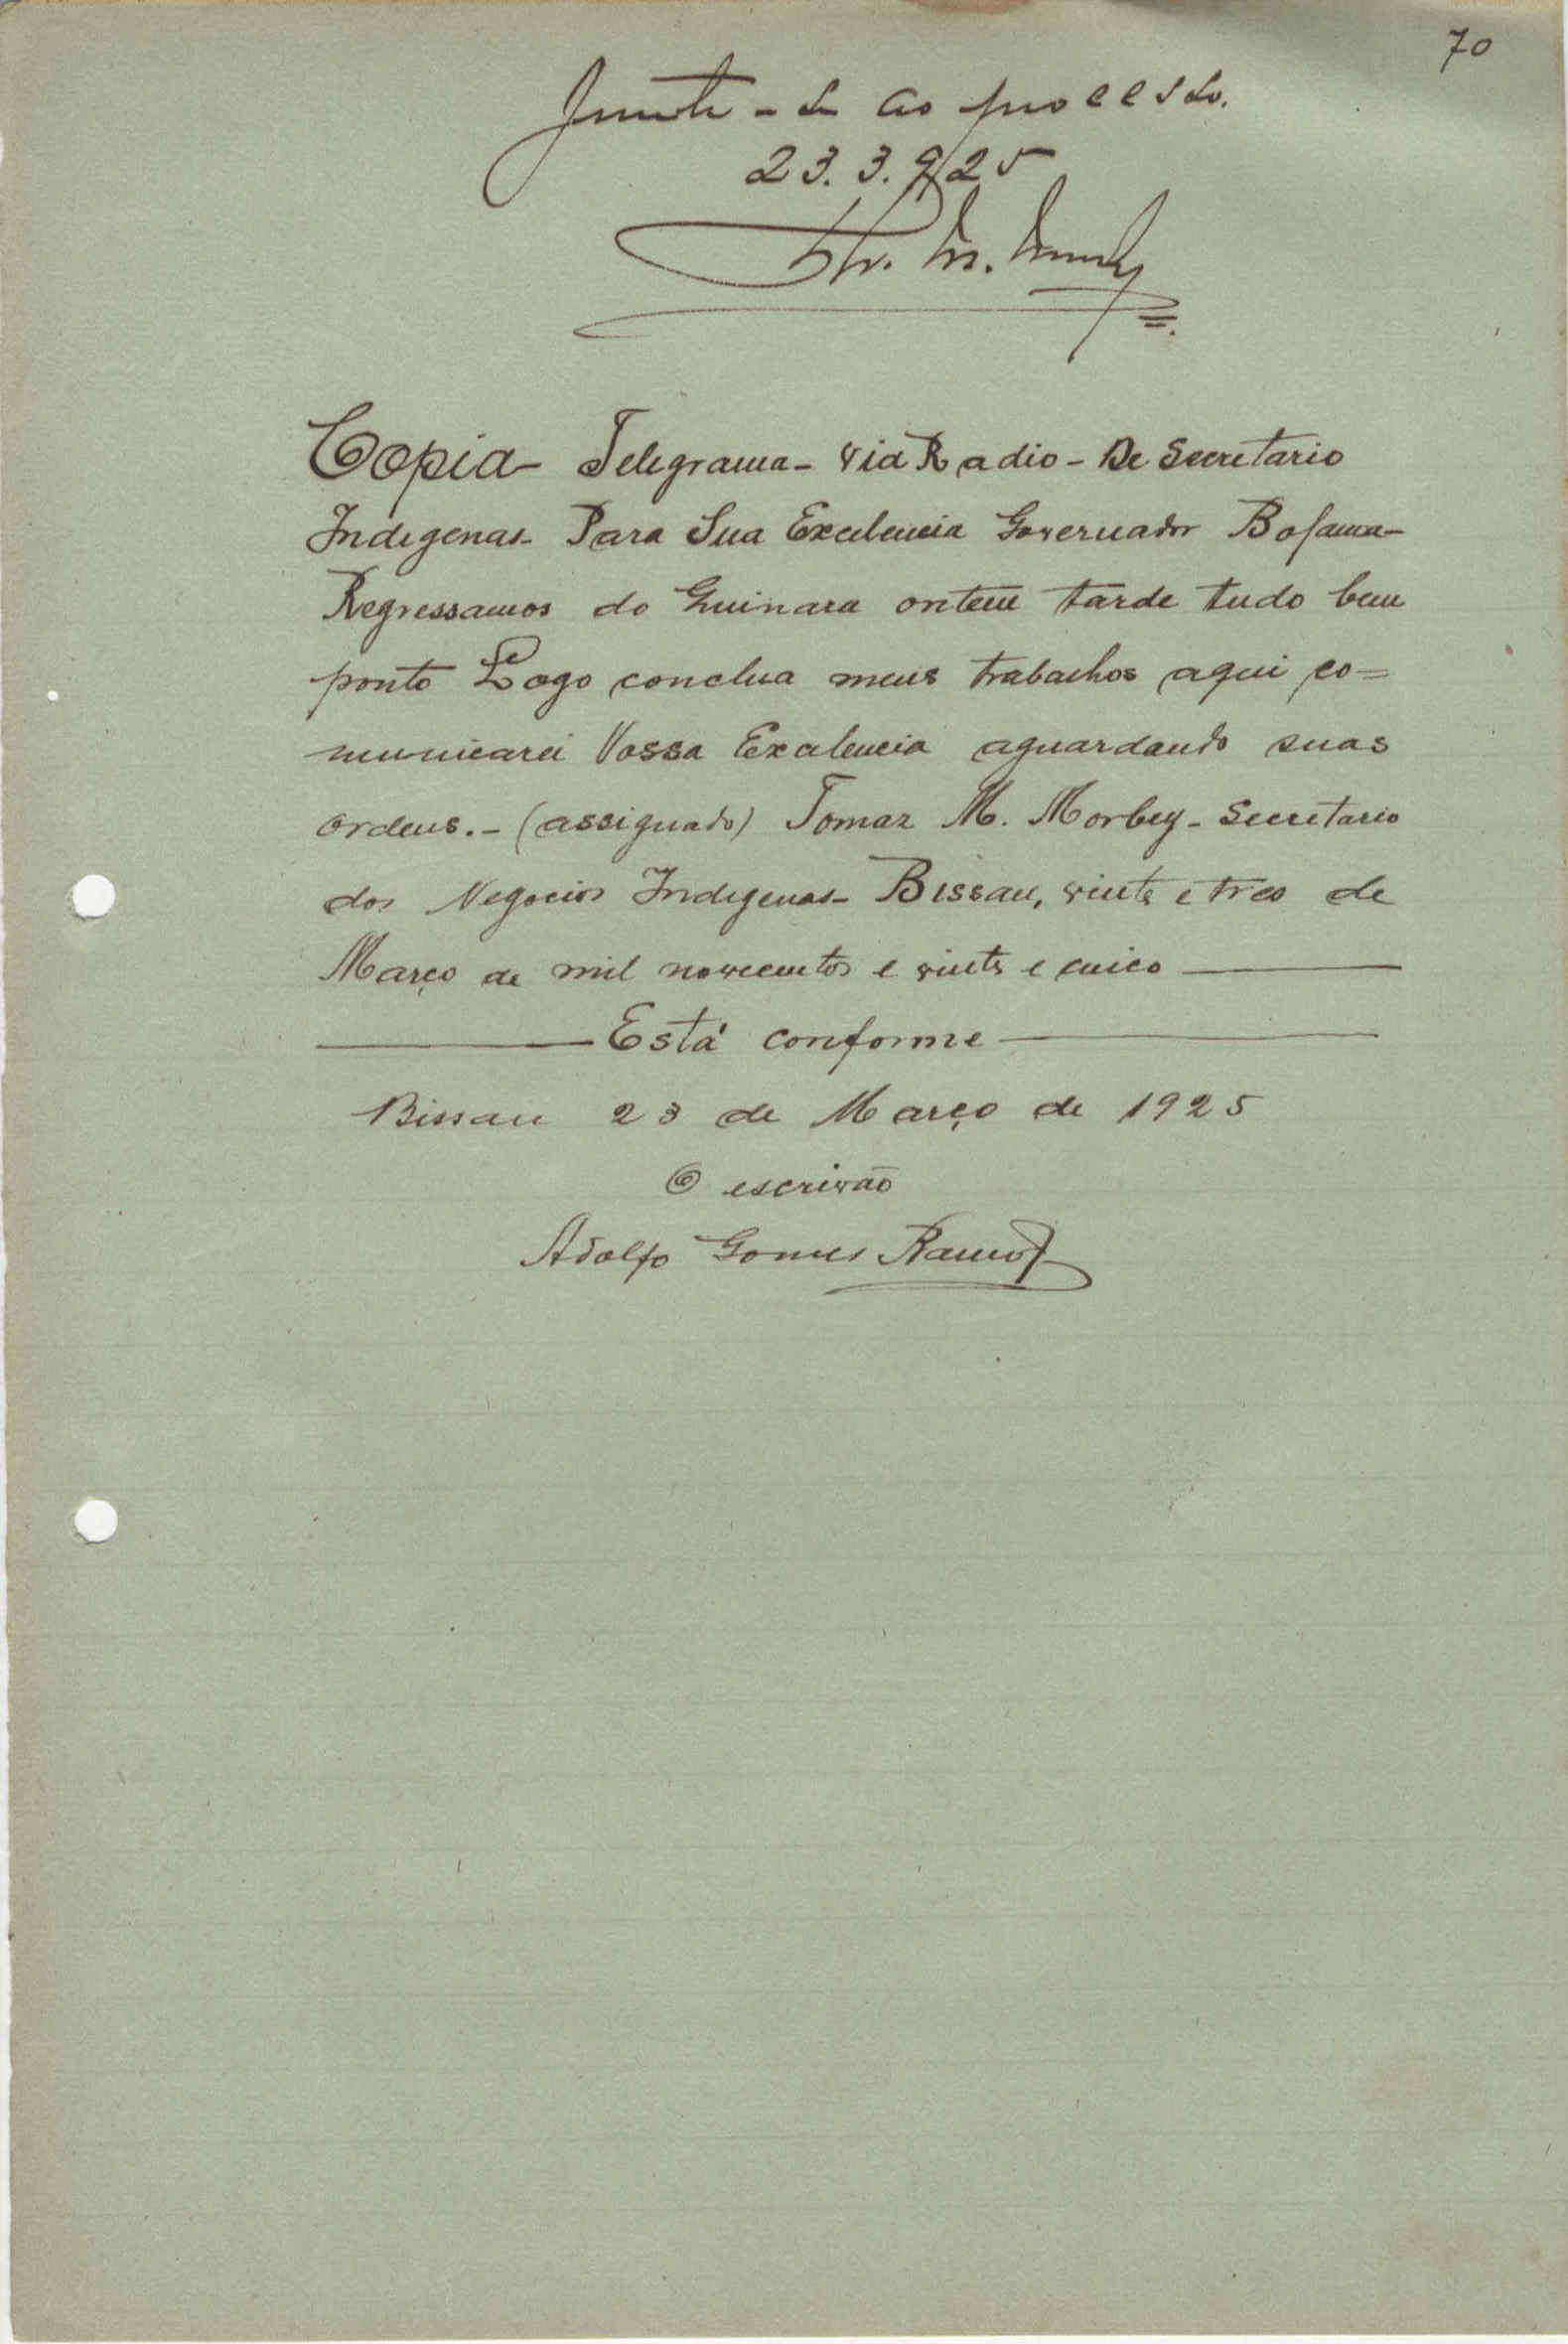 70
Junte-se ao processo.
23.3.925
Copia - Telegrama - via Radio - De Secretario
Indigenas - Para Sua Excelencia Governador Bolama -
Regressamos do Guinara ontem tarde tudo bem
ponto Logo conclua meus trabalhos aqui co=
municarei Vossa Excelencia aguardando suas
ordens. - (assignado) Tomaz M. Morbey - Secretario
dos Negocios Indigenas - Bissau, vinte e tres de
Março de mil novecentos e vinte e cinco
Está conforme
Bissau 23 de Março de 1925
O escrivão
Adolfo Gomes Ramos